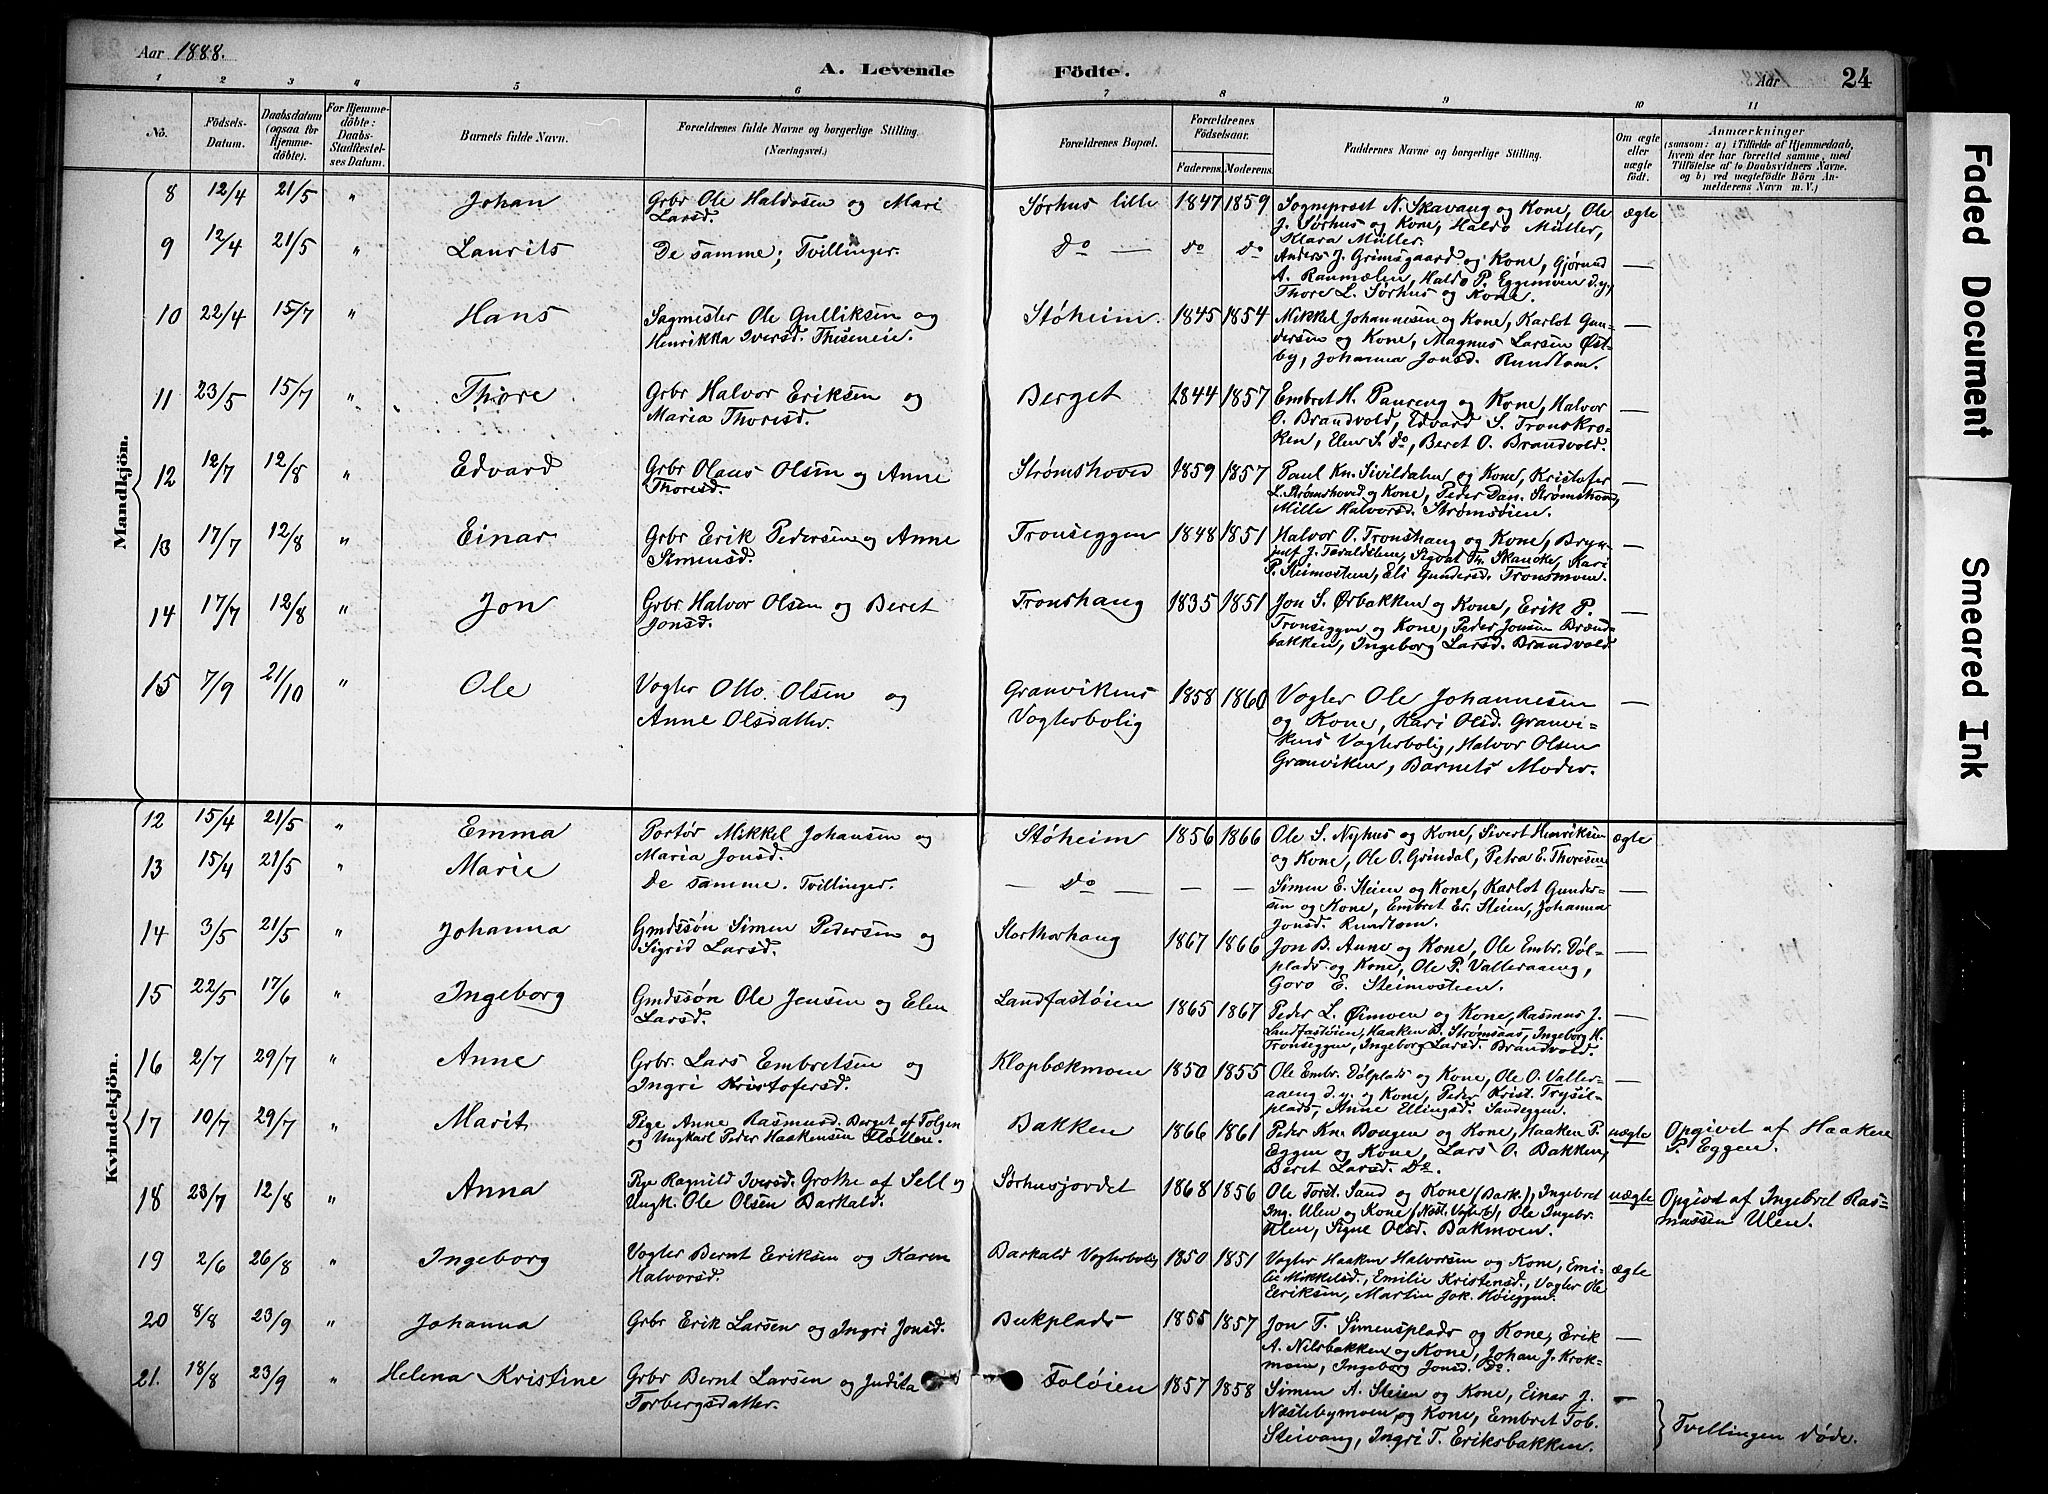 Aar 1888.
A. Levende Födte.
Aar 24
1 2 3 4 5 6 7 8 9 10 11
No. Födsels-Datum. Daabsdatum (ogsaa for Hjemmedöbte). For Hjemmedöbte: Daabs-Stadfæstelses Datum. Barnets fulde Navn. Forældrenes fulde Navne og borgerlige Stilling. (Næringsvei.) Forældrenes Bopæl. Forældrenes Födselsaar. Faderens. Moderens. Faddernes Navne og borgerlige Stilling. Om ægte eller uægte födt. Anmærkninger (saasom: a) i Tilfælde af Hjemmedaab, hvem der har forrettet samme, med Tilföielse af to Daabsvidners Navne. og b) ved uægtefödte Börn Anmelderens Navn m. V.)
Mandkjön.
8 12/4 21/5 " Johan Grbr Ole Haldosen og Mari Larsd. Sørhus lille 1847 1859 Sogneprest N. Skavang og Kone, Ole J. Sørhus og Kone, Haldo Müller, Klara Müller. ægte
9 12/4 21/5 " Laurits De samme; Tvillinger. Do — Do Do Anders J. Grimsgaard og Kone, Gjørund A. Raumælen, Haldo P. Eggemoen d.y., Thore L. Sørhus og Kone. —
10 22/4 15/7 " Hans Sagmester Ole Gulliksen og Henrikka Iversd. Thiseneie. Støheim. 1845 1854 Mikkel Johannesen og Kone, Karlot Gundersen og Kone, Magnus Larsen Østby, Johanna Jonsd. Rundtom. —
11 23/5 15/7 " Thore Grbr Halvor Eriksen og Maria Thoresd. Berget 1844 1857 Embret H. Paureng og Kone, Halvor O. Brandvold, Edvard S. Tronskroken, Elen S. Do, Beret O. Brandvold. —
12 12/7 12/8 " Edvard Grbr Olaus Olsen og Anne Thoresd. Strømshoved 1859 1857 Paul Kn. Sivildalen og Kone, Kristofer L. Strømshoved og Kone, Peder Dan. Strømshoved, Mille Halvorsd. Strømsöien. —
13 17/7 12/8 " Einar Grbr Erik Pedersen og Anne Simensd. Tronseggen 1848 1851 Halvor O. Tronshaug og Kone, Brynjulf J. Taraldslien, Sigvat Th. Skancke, Kari P. Steimosteen, Eli Gundersd. Tronsmoen. —
14 17/7 12/8 " Jon Grbr Halvor Olsen og Beret Jonsd. Tronshaug 1835 1851 Jon S. Ørbakken og Kone, Erik P. Tronseggen og Kone, Peder Jonsen Brændbakken, Ingeborg Larsd. Brandvold —
15 7/9 21/10 " Ole Vogter Otto Olsen og Anne Olsdatter. Granvikens Vogterbolig 1858 1860 Vogter Ole Johannesen og Kone, Kari Olsd. Granvikens Vogterbolig, Halvor Olsen Granviken, Barnets Moder. —
Kvindekjön.
12 15/4 21/5 " Emma Portør Mikkel Johansen og Maria Jonsd. Støheim 1856 1866 Ole S. Nyhus og Kone, Sivert Henriksen og Kone, Ole O. Grindal, Petra E. Thoresen ægte
13 15/4 21/5 " Marie De samme. Tvillinger. — Do — — — Simen E. Steien og Kone, Karlot Gundersen og Kone, Embret Er. Steien, Johanna Jonsd. Rundtom. —
14 3/5 21/5 " Johanna Gmdssøn Simen Pedersen og Sigrid Larsd. Storthorhaug 1867 1866 Jon B. Aune og Kone, Ole Embr. Dölplads og Kone, Ole P. Valleraaeng, Goro E. Steimosteen. —
15 22/5 17/6 " Ingeborg Gmdssøn Ole Jensen og Elen Larsd. Landfastöien 1865 1867 Peder L. Øimoen og Kone, Rasmus J. Landfastöien, Haaken D. Strømsaas, Ingeborg H. Tronseggen, Ingeborg Larsd. Brandvold. —
16 2/7 29/7 " Anne Grbr. Lars Embretsen og Ingri Kristofersd. Klopbækmoen 1850 1855 Ole Embr. Dölplads og Kone, Ole O. Valleraaeng d.y. og Kone, Peder Krist. Trysilplads, Anne Ellingsd. Sandeggen. —
17 10/7 29/7 " Marit Pige Anne Rasmusd. Berget af Tolgen og Ungkarl Peder Haakensen Fløtten. Bakken 1866 1861 Peder Kn. Bougen og Kone, Haaken P. Eggen og Kone, Lars O. Bakken, Beret Larsd. Do. uægte Opgivet af Haaken P. Eggen.
18 23/7 12/8 " Anna Pige Ragnild Iversd. Grothe af Sell og Ungk. Ole Olsen Barkald. Sørhusjordet 1868 1856 Ole Torst. Sand og Kone (Bark.), Ingebret Ing. Ulen og Kone (Næst. Vogterb), Ole Ingebr. Ulen, Signe Olsd. Bakmoen. uægte Opgivet af Ingebret Rasmussen Ulen.
19 2/6 26/8 " Ingeborg Vogter Bernt Eriksen og Karen Halvorsd. Barkald Vogterbolig 1850 1851 Vogter Haaken Halvorsen og Kone, Emilie Mikkelsd., Emilie Kristensd., Vogter Ole Eriksen, Martin Jok. Höieggen. ægte
20 8/8 23/9 " Johanna Grbr Erik Larsen og Ingri Jonsd. Bukplads 1855 1857 Jon T. Simensplads og Kone, Erik A. Nilsbakken og Kone, Johan J. Krokmoen, Ingeborg Jonsd. Do. —
21. 18/8 23/9 " Helena Kristine Grbr Bernt Larsen og Judita Torbergsdatter. Toløien 1857 1858 Simen A. Steien og Kone, Einar J. Næstebymoen og Kone, Embret Tob. Steivang, Ingri T. Eriksbakken. — Tvellingen døde.
Faded Document
Smeared Ink